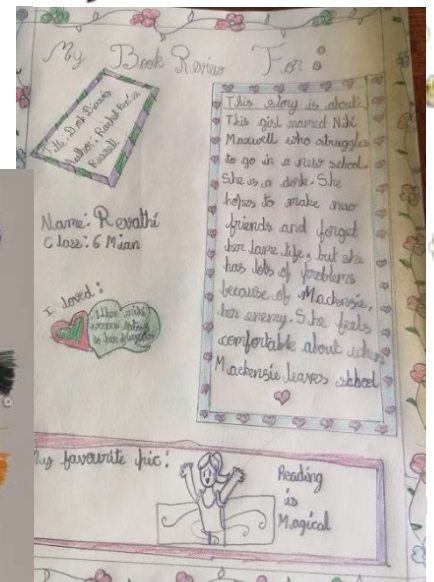 My Book Review For :
Title: Dork Diaries
Author: Rachel Renée
Russell
Name: Revathi
Class: 6 Mian
I loved:
When nikki
to her
This story is about
This girl named Niki
Maxwell who struggles
to go in a new school.
She is a dork. She
hopes to make new
friends and forget
her lame life, but she
has lots of problems
because of Mackenzie,
her enemy. She feels
comfortable about when
Mackenzie leaves school
My favourite pic:
Reading
is
Magical